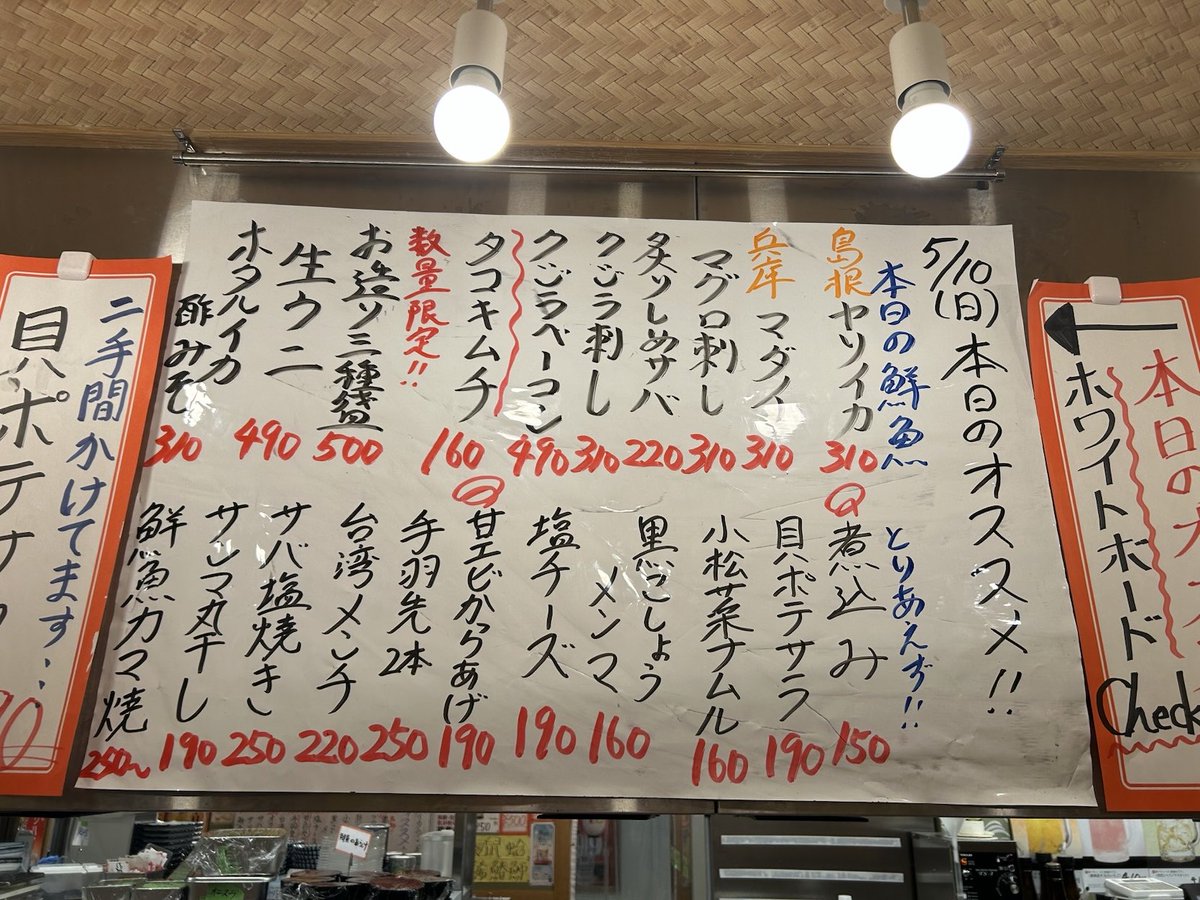 5/10(日)本日のオススメ!!
本日の鮮魚
島根 ヤリイカ 310
兵庫 マダイ 310
マグロ刺し 310
炙りしめサバ 220
クジラ刺し 310
クジラベーコン 490
タコキムチ 160
数量限定!!
お造り三種盛 500
生ウニ 490
ホタルイカ
酢みそ 310
とりあえず!!
煮込み 150
貝ポテサラ 190
小松菜ナムル 160
黒こしょう
メンマ 160
塩チーズ 190
甘エビからあげ 190
手羽先2本 250
台湾メンチ 220
サバ塩焼き 250
サンマ丸干し 190
鮮魚カマ焼 250〜
本日の
ホワイトボード
Check
二手間かけてます..
貝ポテサ